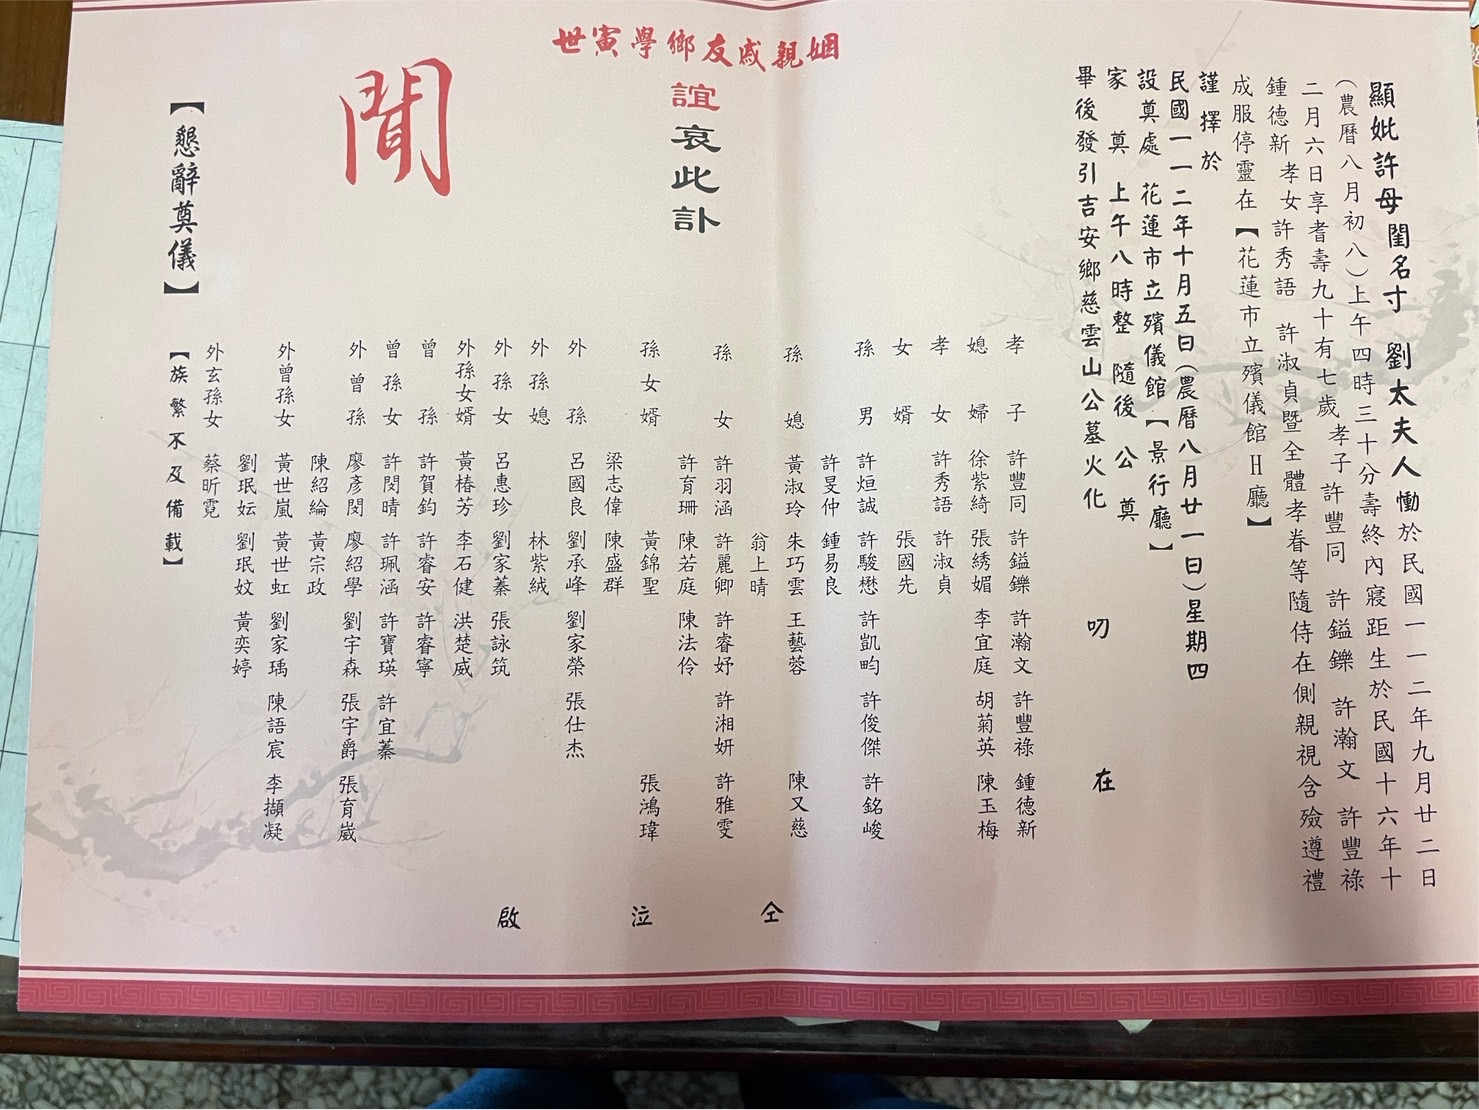 顯妣許母閨名寸　劉太夫人慟於民國一一二年九月廿二日
（農曆八月初八）上午四時三十分壽終內寢距生於民國十六年十
二月六日享耆壽九十有七歲孝子許豐同　許鎰鑠　許瀚文　許豐祿
鍾德新孝女許秀語　許淑貞暨全體孝眷等隨侍在側親視含殮遵禮
成服停靈在【花蓮市立殯儀館H廳】
謹擇於
民國一一二年十月五日（農曆八月廿一日）星期四
設奠處　花蓮市立殯儀館【景行廳】
家　奠　上午八時整　隨後　公　奠
畢後發引吉安鄉慈雲山公墓火化　叨　在
姻親戚友鄉學寅世
誼哀此訃
聞
【懇辭奠儀】
孝子　許豐同　許鎰鑠　許瀚文　許豐祿　鍾德新
媳婦　徐紫綺　張綉媚　李宜庭　胡菊英　陳玉梅
孝女　許秀語　許淑貞
女婿　張國先
孫男　許烜誠　許駿懋　許凱畇　許俊傑　許銘峻
許旻仲　鍾易良
孫媳　黃淑玲　朱巧雲　王藝蓉　陳又慈
翁上晴
孫女　許羽涵　許麗卿　許睿妤　許湘妍　許雅雯
許育珊　陳若庭　陳法伶
孫女婿　黃錦聖　張鴻瑋
梁志偉　陳盛群
外孫　呂國良　劉承峰　劉家榮　張仕杰
外孫媳　林紫絨
外孫女　呂惠珍　劉家蓁　張詠筑
外孫女婿　黃椿芳　李石健　洪楚威
曾孫　許賀鈞　許睿安　許睿寧
曾孫女　許閔晴　許珮涵　許寶瑛　許宜蓁
外曾孫　廖彥閔　廖紹學　劉宇森　張宇爵　張育崴
陳紹綸　黃宗政
外曾孫女　黃世嵐　黃世虹　劉家瑀　陳語宸　李擷凝
劉珉妘　劉珉妏　黃奕婷
外玄孫女　蔡昕霓
【族繁不及備載】
仝　泣　啟